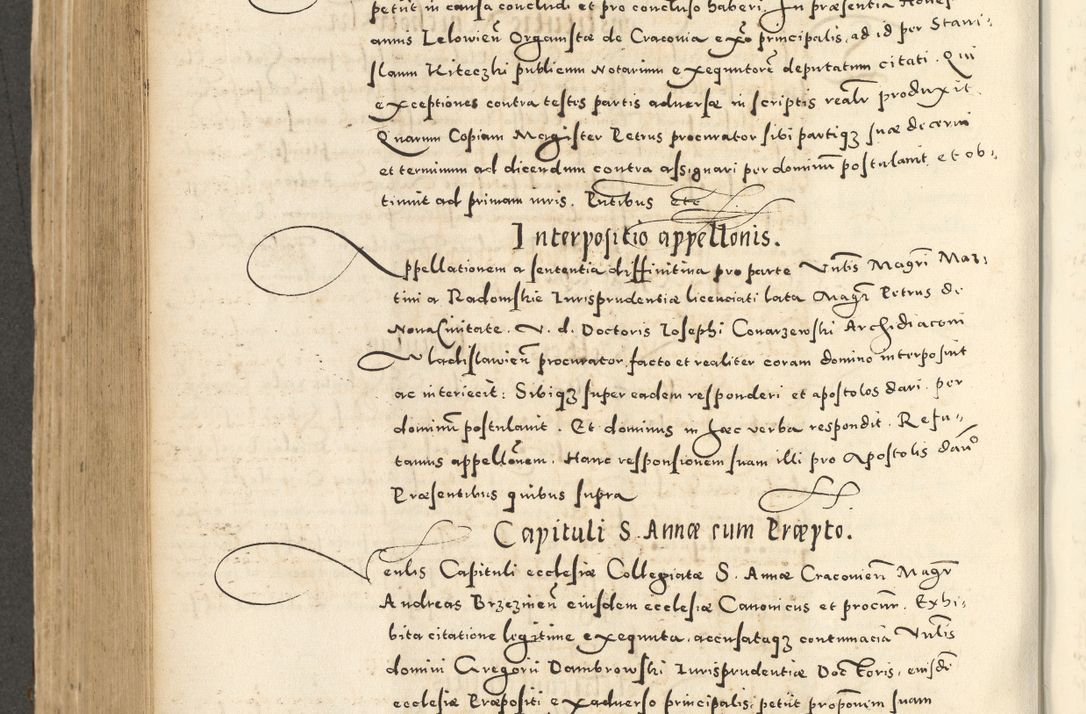 petiit in causa concludi et pro concluso haberi. In præsentia Hones
annis Lelowien̄ Organistæ de Cracovia ex̄o principalis, ad id per Stanis-
slaum Kiteczki publicum Notarium exequutorē deputatum citati. Qui
exceptiones contra testes partis adversæ in scriptis realr̄ produxit.
Quarum Copiam Magister Petrus procurator sibi partiqȝ suæ decerni
et terminum ad dicendum contra assignari per dominum̄ postulavit, et ob-
tinuit ad primam iuris. Pn̄tibus etc
Interpositio appell̄onis.
Appellationem a sententia diffinitiva pro parte Vn̄lis Magr̄i Mar-
tini a Radomskie Iurisprudentiæ licenciati lata Magr̄ Petrus de
Nova Civitate. V. d. Doctoris Iosephi Conarzewski Archidiaconi
Wladislawien̄ procurator, facto et realiter coram domino interposuit
ac interiecit: Sibiqȝ super eadem responderi et apostolos dari. per
dominum̄ postulavit. Et dominus in hæc verba respondit. Refu-
tamus appell̄onem. Hanc responsionem suam illi pro Apostolis dan̄o
Præsentibus quibus supra
Capituli S. Annæ cum Præpto.
Ven̄lis Capituli ecclesiæ Collegiatæ S. Annæ Cracovien̄ Magr̄
Andreas Brzezinen̄ eiusdem ecclesiæ Canonicus et procur̄. Exhi-
bita citatione legitime exequuta, accusataqȝ contumacia Vn̄lis
domini Gregorii Dambrowski Iurisprudentiæ Doctoris, eiusdē
ecclesiæ Præpositi ex adverso principalis, petiit propon̄em suam